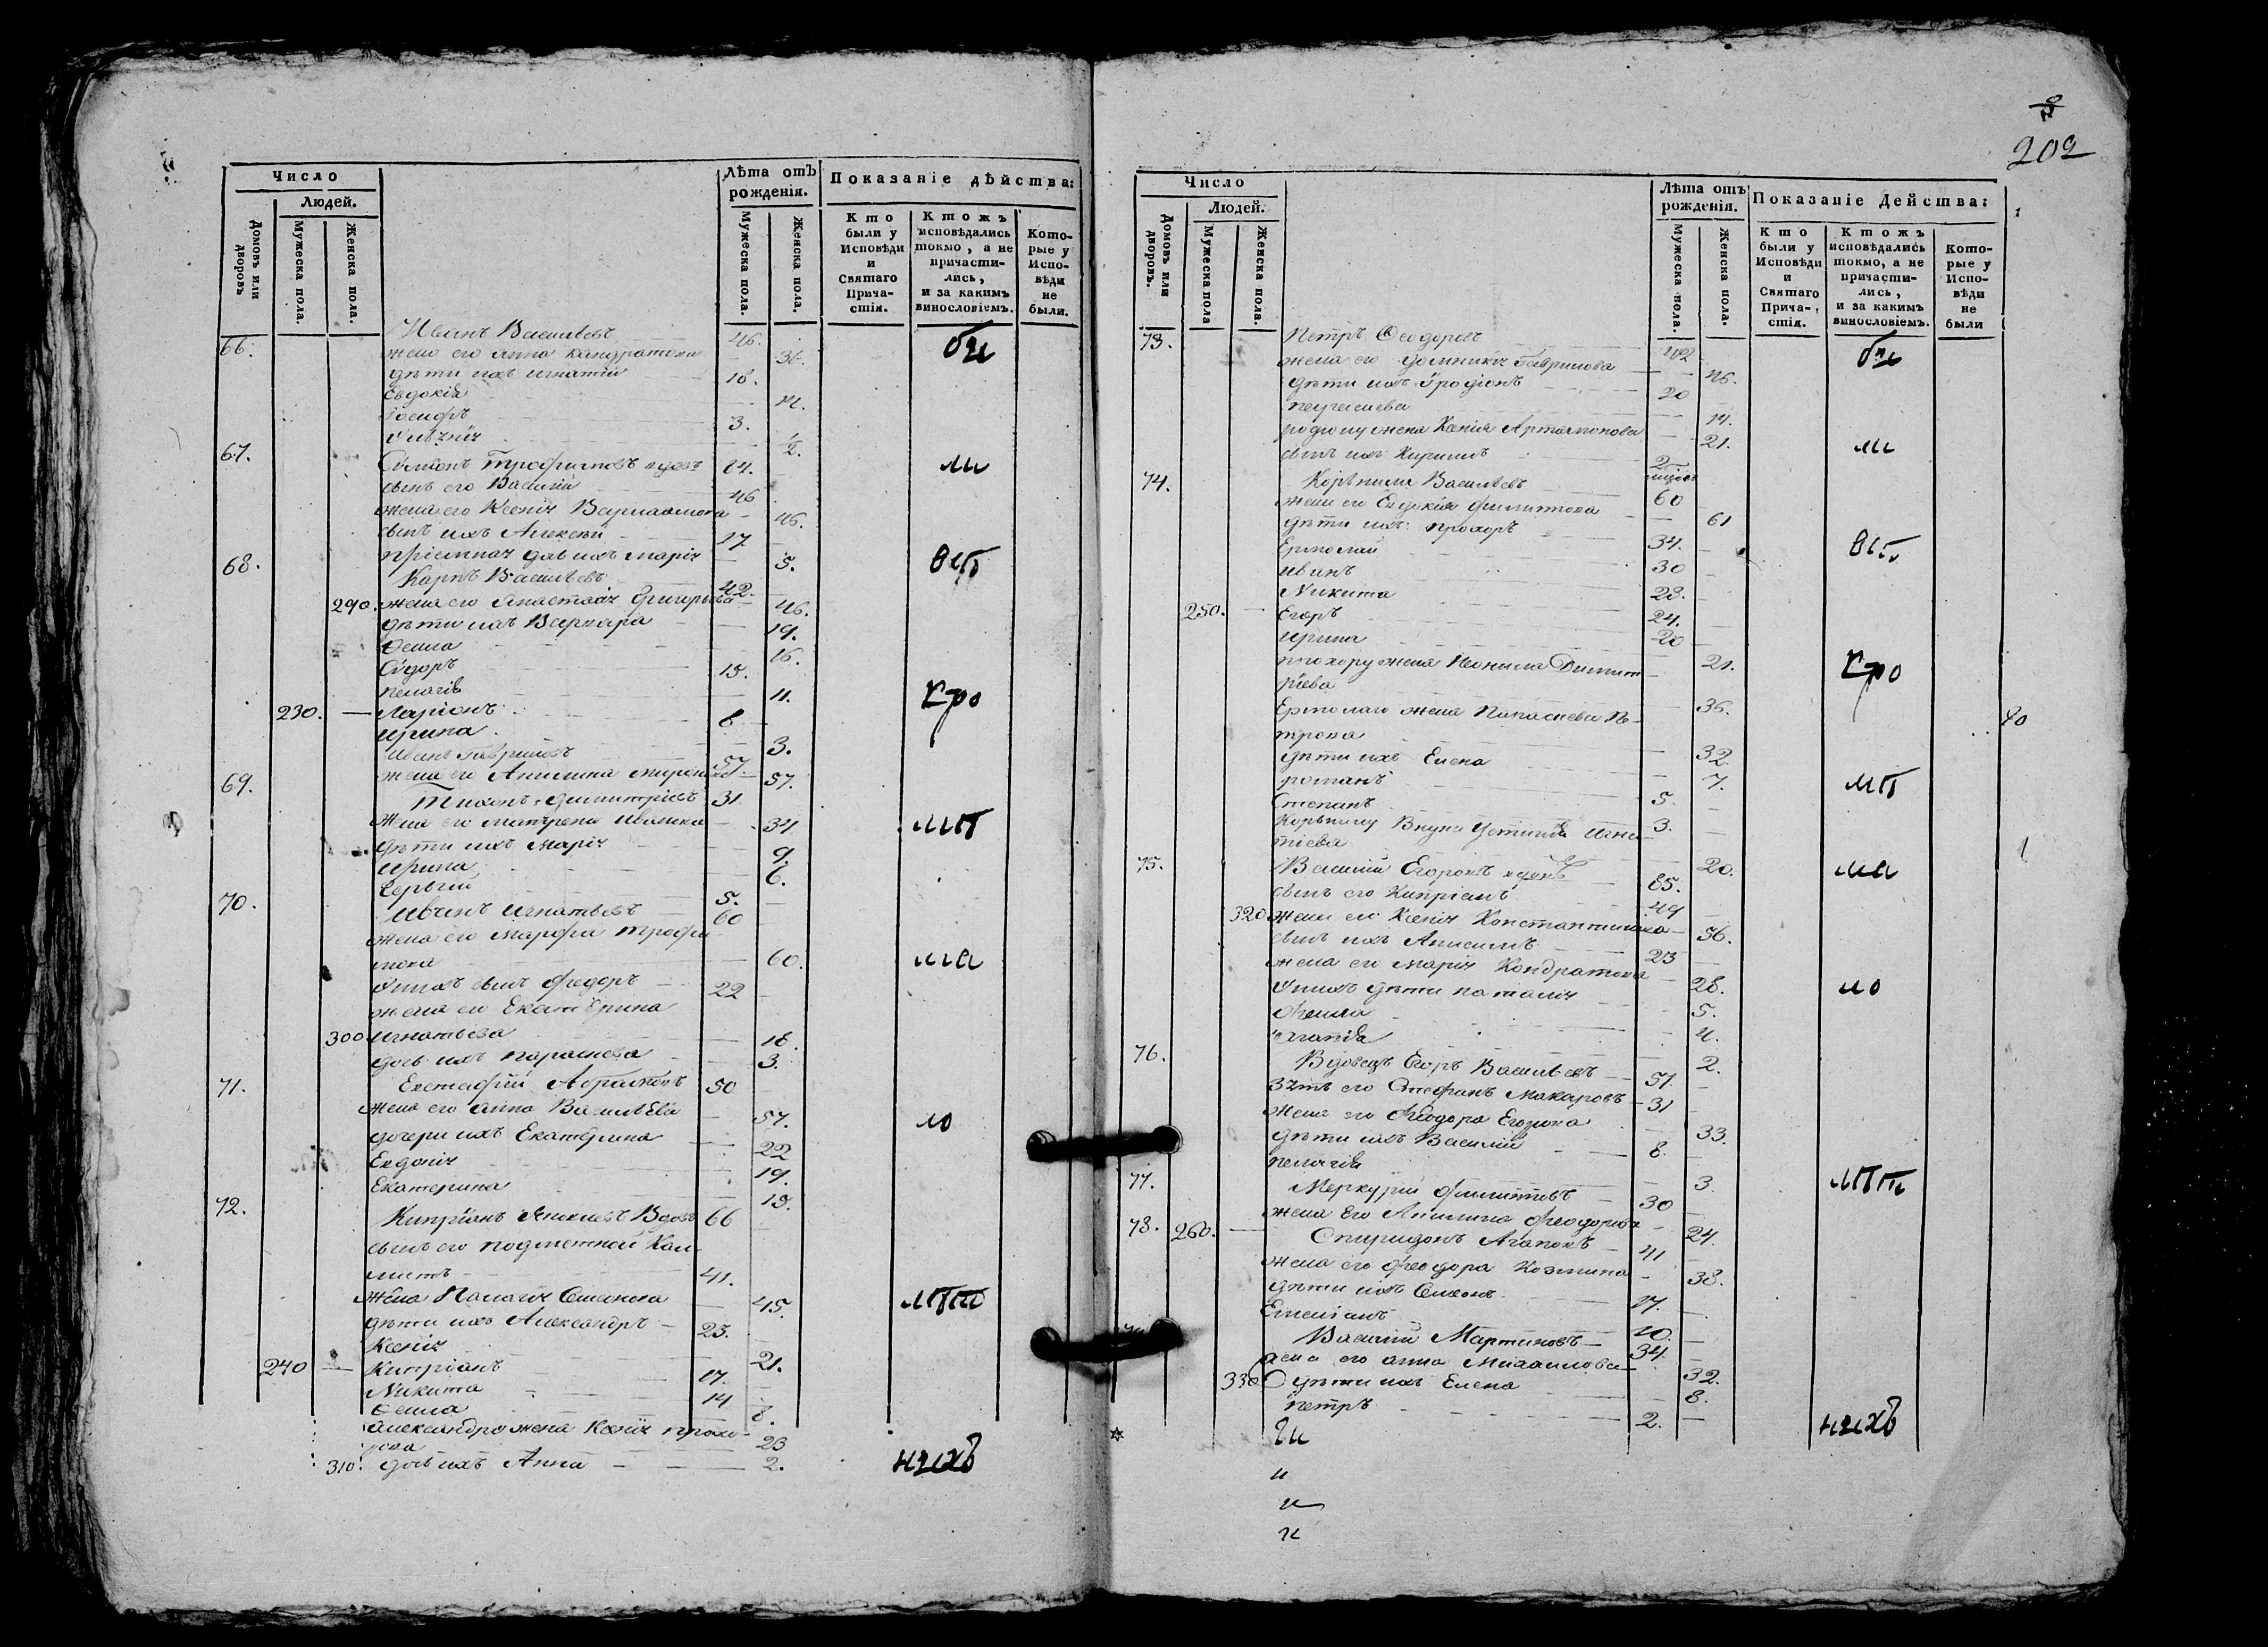 Число
Людей.
Домовъ или дворовъ
Мужеска пола.
Женска пола.
Лѣта отъ рожденія.
Мужеска пола.
Женска пола.
Показаніе дѣйства:
Кто были у Исповѣди и Святаго Прича-стія.
Ктожъ исповѣдались токмо, а не причасти-лись, и за какимъ винословіемъ.
Кото-рые у Испо-вѣди не были.
66. Иванъ Васильевъ 46.
жена его Анна Кандратова 36.
дѣти ихъ Игнатій 18.
Евдокія
Іосифъ 3.
67. Симеонъ Трофимовъ вдовъ
сынъ его Василій 46
жена его Ксенія 46.
сынъ ихъ Алексей 17
дочь ихъ Марія 5.
68. Карпъ Васильевъ 42.
290. жена его Анастасія Григорьева 46.
дѣти ихъ Варвара 19.
Ѳекла 16.
Сидоръ 15.
Пелагія 11.
230. Ларіонъ 8
Ирина 3.
Иванъ Гавриловъ 57
жена его Акилина 57.
69. Тихонъ Димитріевъ 31
жена его Матрена Иванова 34
дѣти ихъ Марія 9.
Ирина 6.
Сергѣй 5.
70. Иванъ Игнатьевъ 60
жена его Марфа Трофи
мова 60.
У нихъ сынъ Федоръ 22
жена его Екатерина
300 Игнатьева 18.
дочь ихъ Параскева 3.
71. Евстафій Абрамовъ 50
жена его Анна Васильева 57.
дочери ихъ Екатерина 22
Евдокія 19.
Екатерина 15.
72. Кипріанъ Вдовъ 66
сынъ его
41.
жена Палагія Семенова 45.
дѣти ихъ Александръ 23.
Ксенія 21.
240 Кипріанъ 17.
Никита 14
Ѳекла 8.
Александра жена Ксенія Прохо-
рова 23
310. дочь ихъ Анна 2.
нихъ
202
Число
Людей.
Домовъ или дворовъ.
Мужеска пола
Женска пола.
Лѣта отъ рожденія.
Мужеска пола.
Женска пола.
Показаніе Действа:
Кто были у Исповѣди и Святаго Прича-стія.
Ктожъ исповѣдались токмо, а не причасти-лись, и за какимъ винословіемъ.
Кото-рые у Испо-вѣди не были
73. Петръ Ѳеодоровъ 42
жена его Домникія Гаврилова 46.
дѣти ихъ Иродіонъ 20
14.
жена Ксенія Артамонова 21.
сынъ ихъ Кирилъ 2
74. Корнилій Васильевъ 60
жена его Евдокія Филипова 61
дѣти ихъ Прохоръ 34.
Ермолай 30
Иванъ 28.
Никита 24.
250. Егоръ 20
Ирина 21.
Прохору жена Неонила Димит
ріева 36.
Ермолаю жена Параскева Пе-
трова 32
дѣти ихъ Елена 7.
Романъ 5.
Степанъ 3.
Корнилу внука Устинія Игна
тіева 20.
75. Василій Егоровъ вдовъ 85.
сынъ его Кипріанъ 49
320 жена его Ксенія Константинова 56.
сынъ ихъ Анисимъ 25
жена его Марія Кондратова 28.
У нихъ дѣти Наталія 5.
Ѳекла 4.
Агапія 2.
76. Вдовецъ Егоръ Васильевъ 57.
Зять его Стефанъ Макаровъ 31
жена его Ѳеодора Егорова 33.
дѣти ихъ Василій 8.
Пелагія 3.
77. Меркурій Филиповъ 30
жена его Акилина Ѳеодорова 24.
78. 260. Спиридонъ Агаповъ 41
жена его Ѳеодора Козмина 38.
дѣти ихъ Семенъ 17.
Емеліанъ 10.
Василій Мартиновъ 34.
жена его Анна Михаилова 32.
330 дѣти ихъ Елена 8.
Петръ 2.
нихъ